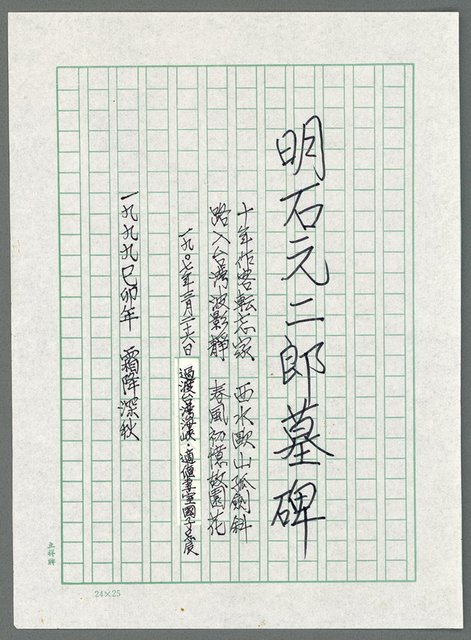 明石元二郎墓碑
十年作客転忘家 西水歐山孤劍斜
路入台灣波影靜 春風初憶故園花
一九〇七年三月二十六日 過渡台灣海峽·適值李室國子忌辰
一九九九己卯年 霜降深秋
立祥牌
24×25